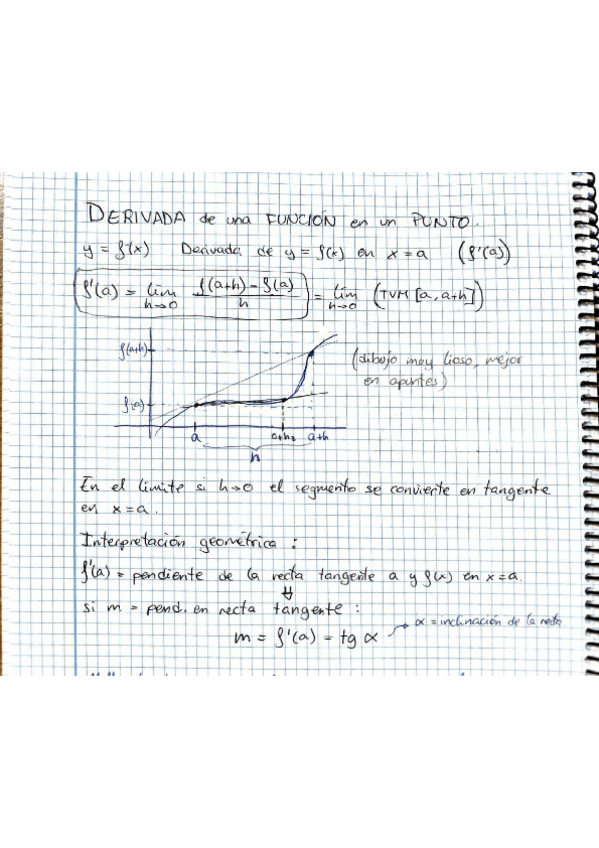 DERIVADA de una FUNCIÓN en un PUNTO.
y = f(x) Derivada de y = f(x) en x = a (f'(a))
f'(a) = lím h→0 f(a+h) - f(a) / h = lím h→0 (TVM [a, a+h])
f(a+h)
(dibujo muy lioso, mejor
en apuntes)
f(a)
a a+h₂ a+h
h
En el límite si h→0 el segmento se convierte en tangente
en x = a.
Interpretación geométrica :
f'(a) = pendiente de la recta tangente a y f(x) en x = a.
⇓
si m = pend. en recta tangente :
m = f'(a) = tg α → α = inclinación de la recta